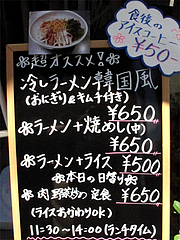 食後の
アイスコーヒー
¥50-
超オススメ!
冷しラーメン韓国風
(おにぎり&キムチ付き)
¥650
ラーメン+焼めし(中)
¥650
ラーメン+ライス ¥500
本日の日替り
肉野菜炒め定食 ¥650
(ライスおかわりOK)
11:30~14:00(ランチタイム)